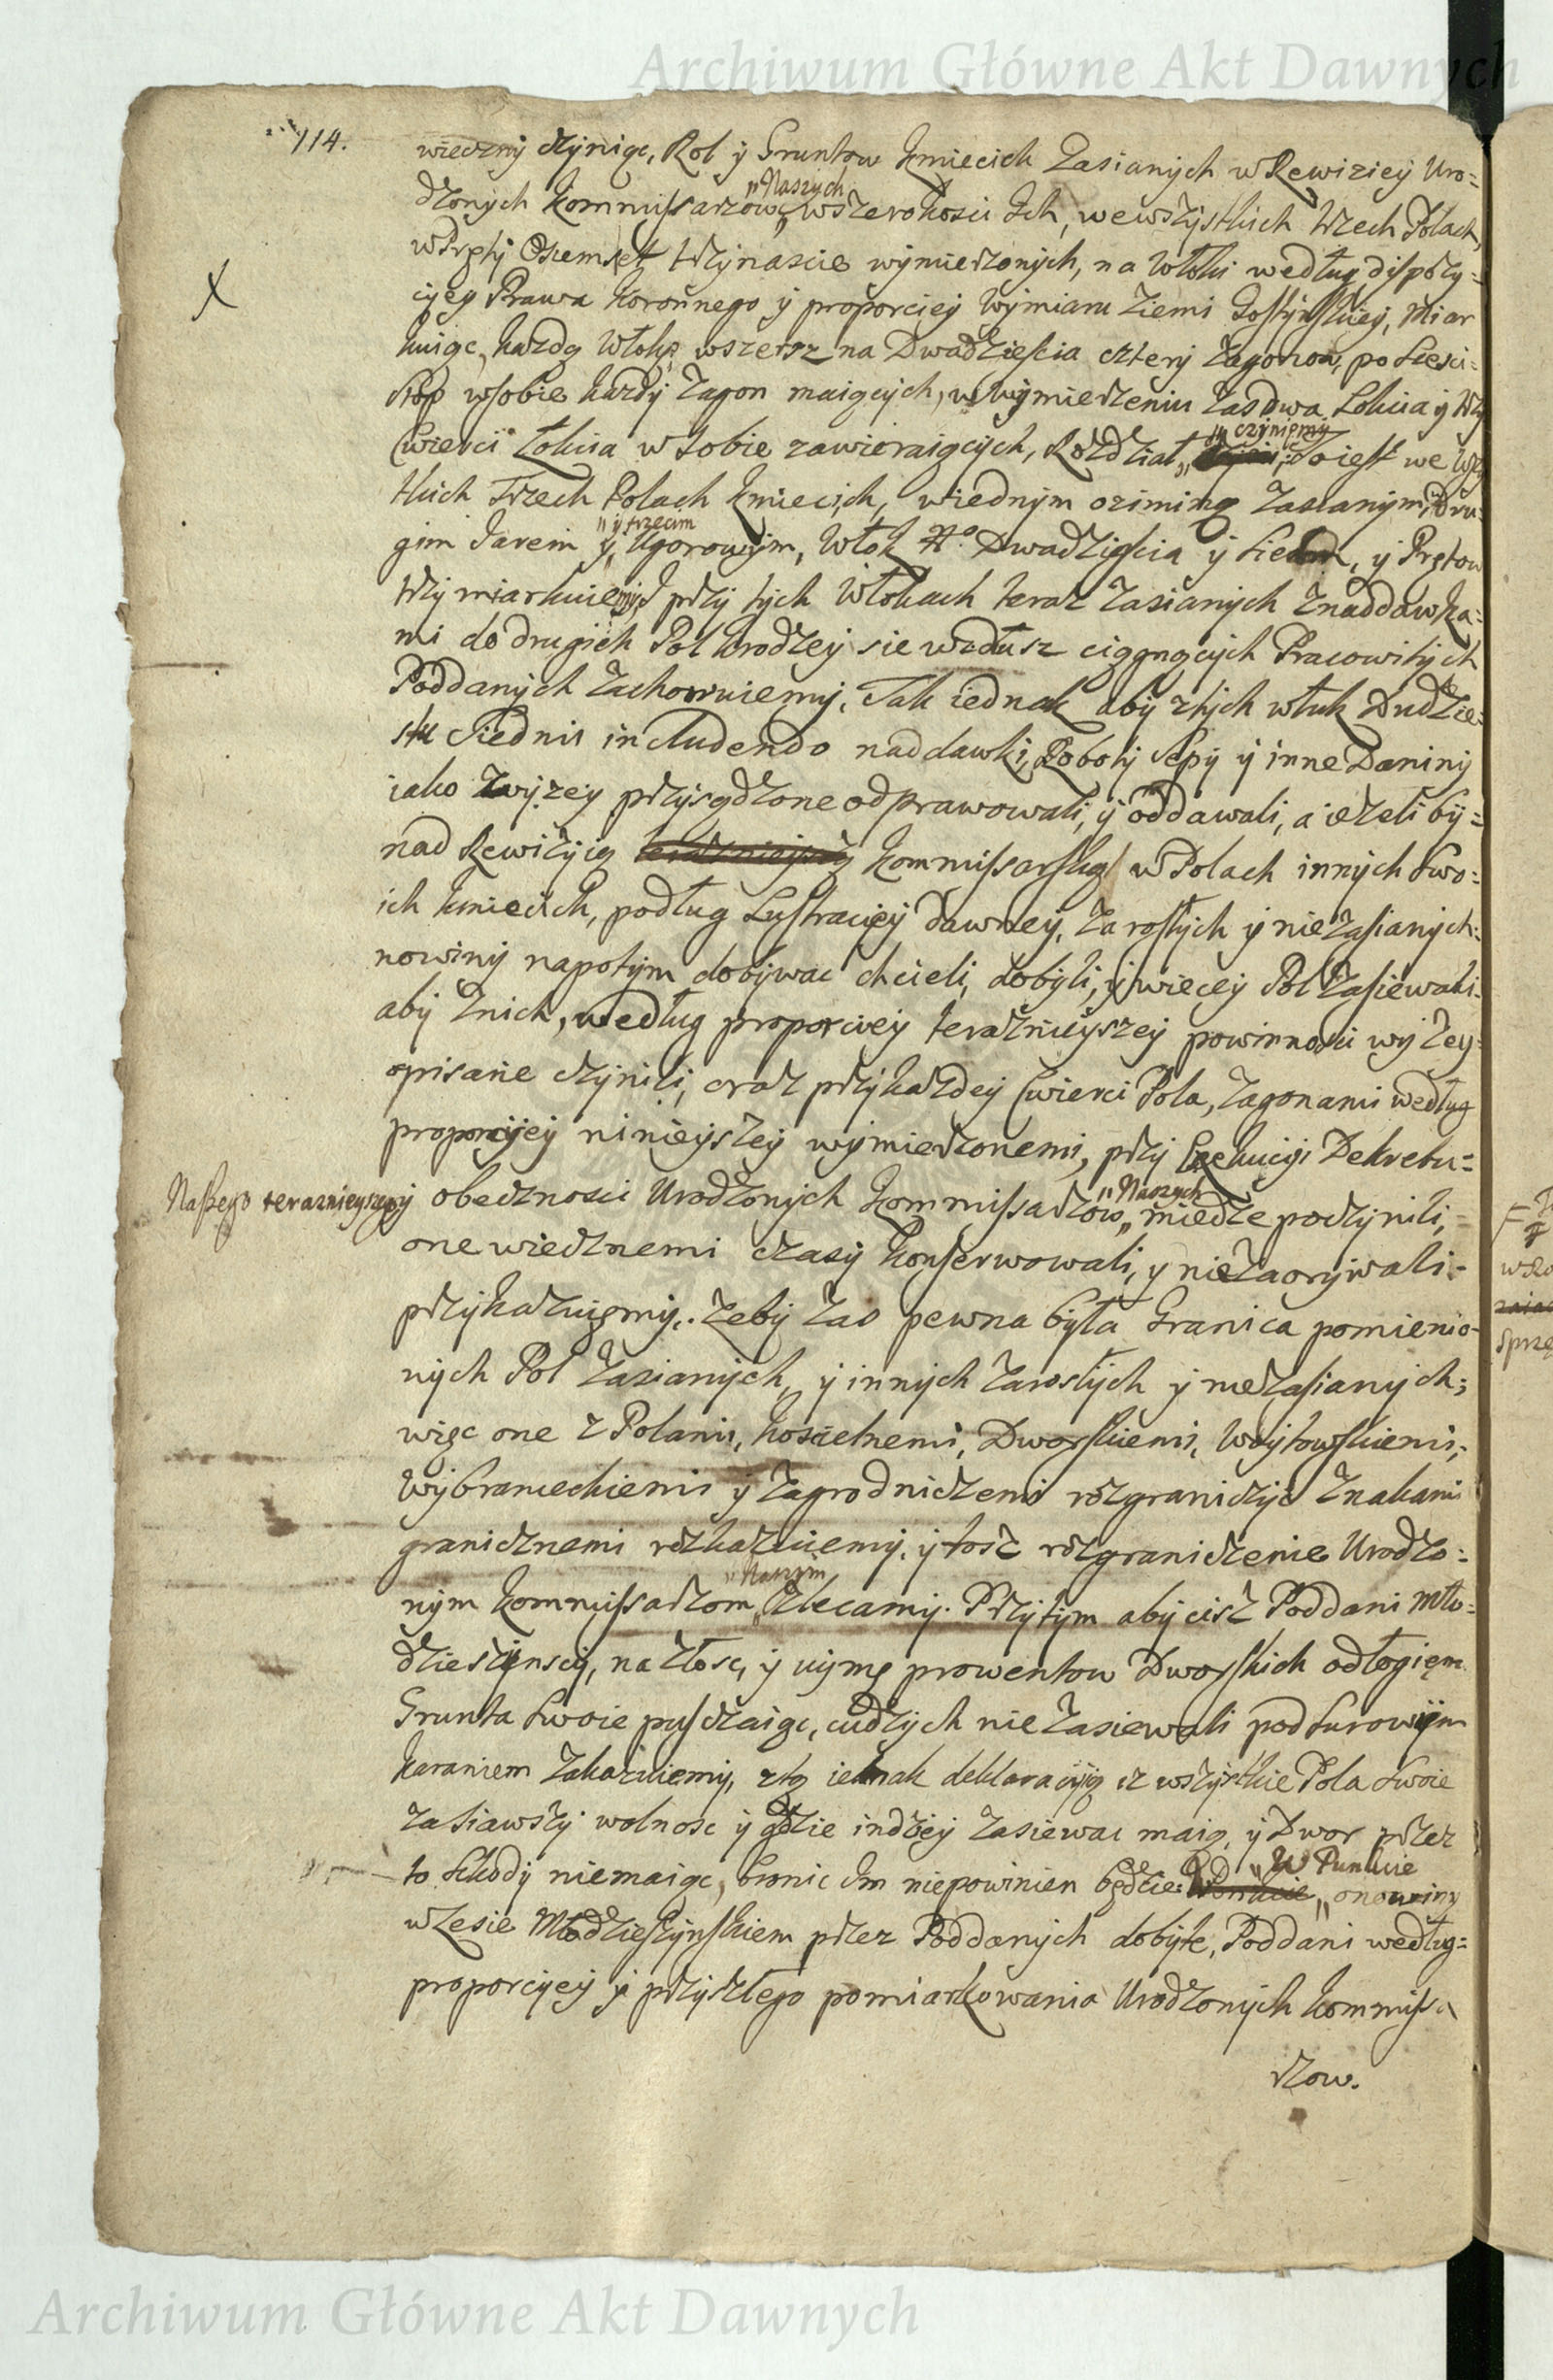 Archiwum Główne Akt Dawnych
114.
wieczny czyniąc, Rol y Gruntow Kmiecich Zasianych w Rewiziey Uro=
dzonych Kommissarzow „Naszych„ w szerokosci Ich, we wszystkich trzech Polach,
w Pręty Osmset trzynascie wymierzonych, na Włoki według dispozy=
cyey Prawa Koronnego y proporciey Wymiaru Ziemi Gostynskiey, Miar
kuiąc, kazdą Włokę wszersz na Dwadziescia cztery Zagonow, po Szesci=
Stop w sobie kazdy Zagon maiących, w wymierzeniu Zas dwa Łokcia y trzy
Cwierci Łokcia w sobie zawieraiących, Rozdział „czyniemy„ To iest we wszy
tkich Trzech Polach Kmiecich, w iednym oziminą Zasianym, Dru=
gim Jarem y „y trzecim„ Ugorowym, Włok No Dwadziescia y Siedm, y Prętow
trzy miarkuiemy, y przy tych Włokach teraz Zasianych z naddawka=
mi do drugich Pol krodzey sie wzdłusz ciągnących Pracowitych
Poddanych Zachowuiemy, Tak iednak aby z tych włuk Dudzie=
stu Siedmi includendo naddawki, Roboty Sepy y inne Daniny
iako Zwyzey przysądzone odprawowali, y oddawali, a iezeli by=
nad Rewizyią teraznieyszą Kommissarską w Polach innych Swo=
ich kmiecich, podług Lustracyey Dawney, Zarosłych y nie Zasianych=
nowiny napotym dobywac chcieli, dobyli, y wiecey Pol Zasiewali=
aby Znich, według proporciey teraznieyszey powinnosci wyzey=
opisane czynili, oraz przy kazdey Cwierci Pola, Zagonami według
proporcyey ninieyszey wymierzonemi, przy Exekucyi Dekretu=
Naszego teraznieyszego y obecznosci Urodzonych Kommissarzow „Naszych„ miedze poczynili,=
one wiecznemi czasy Konserwowali, y nie Zaorywali=
przykazuiemy. Zeby Zas pewna była Granica pomienio=
nych Pol Zasianych, y innych Zarosłych y nie Zasianych;
więc one z Polami, Koscielnemi, Dworskiemi, Woytowskiemi,
Wybranieckiemi y Zagrodniczemi rozgraniczyc Znakami
granicznemi rozkazuiemy, y tosz rozgraniczenie Urodzo=
nym Kommissarzom „Naszym„ Zlecamy. Przytym aby cisz Poddani Mło=
dzieszynscy, na złosc, y uymę prowentow Dworskich odłogiem
Grunta Swoie puszczaiąc, cudzych nie Zasiewali pod Surowym
karaniem Zakazuiemy, z tą iednak deklaracyią iz wszystkie Pola Swoie
Zasiawszy wolnosc y gdzie indzey Zasiewac maią, y Dwor przez
to Szkody niemaiąc, bronic Im niepowinien będzie. „W Punkcie„ o nowiny
w Lesie Młodzieszynskiem przez Poddanych dobyte, Poddani według=
proporcyey y przyszłego pomiarkowania Urodzonych Kommissa
rzow.
Archiwum Główne Akt Dawnych